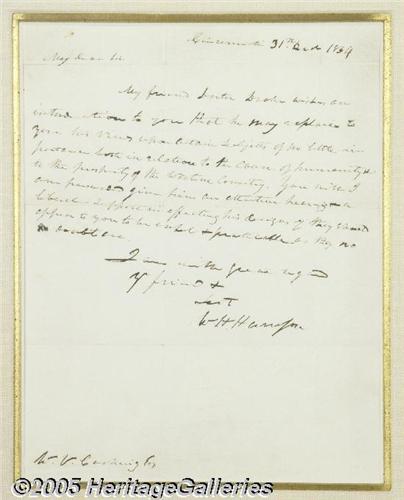 Cincinnati 31st Oct 1839
My dear Sir
My friend Doctor Drake wishes an
introduction to you that he may explain to
you his views upon certain subjects of no little im
portance both in relation to the cause of humanity &
to the prosperity of the Western Country. You will I
am persuaded give him an attentive hearing & a
liberal support in effecting his designs if they should
appear to you to be useful & practicable as they no
doubt are
I am with great regard
Yr friend &
W H Harrison
©2005 HeritageGalleries.com